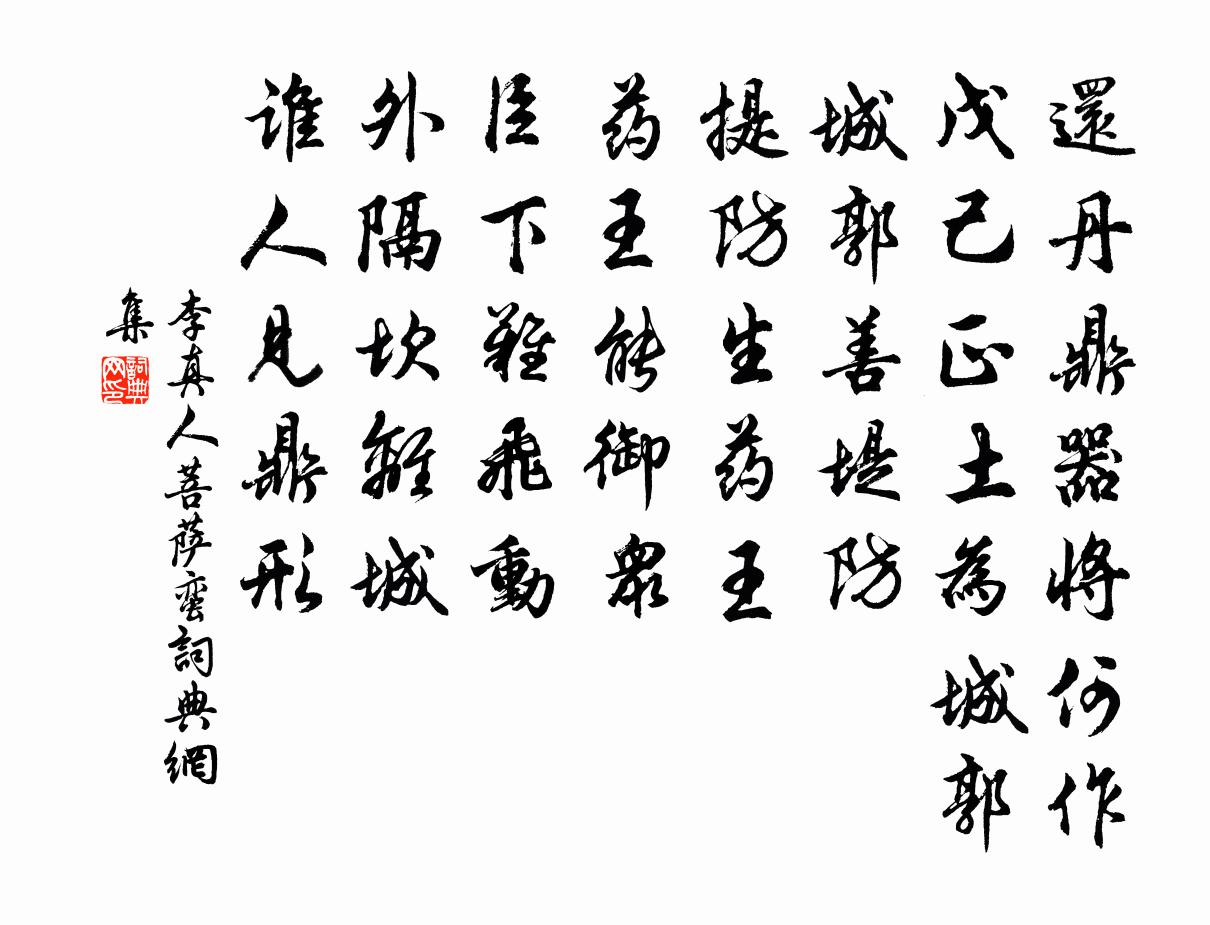 還丹鼎器將何作
戊己正土為城郭
城郭善堤防
提防生药王
药王能御眾
臣下難飛動
外隔坎離城
谁人見鼎形
李真人菩萨蛮詞典網
集
詞典
网印